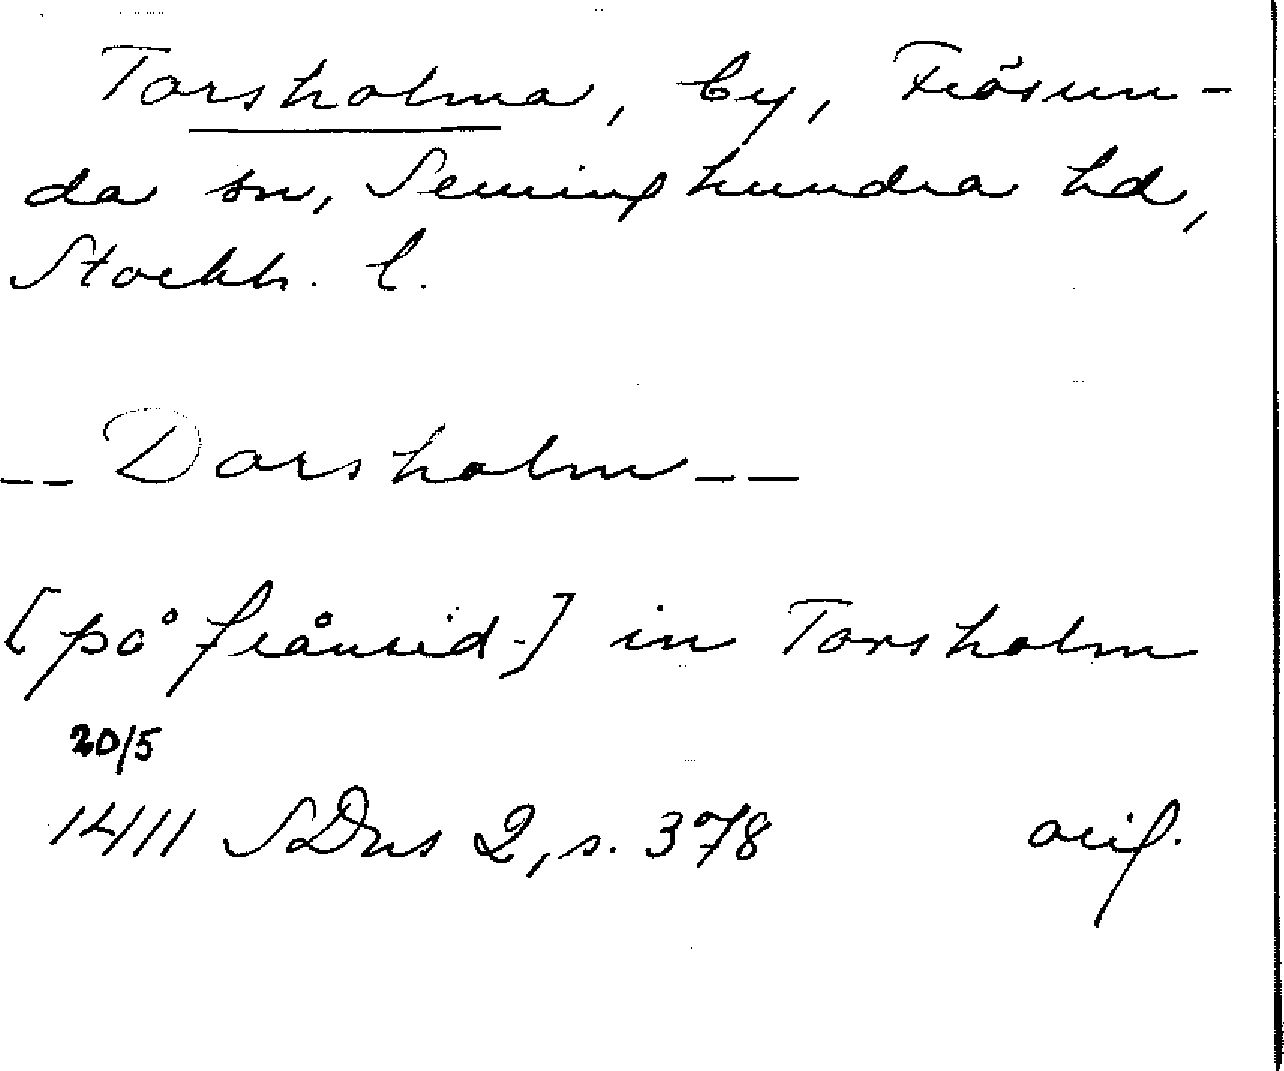 Torsholma, by, Frösun-
da sn, Seminghundra hd,
Stockh. l.
-- Dorsholm --
[på frånsid.] in Torsholm
20/5
1411 SDns 2, s. 378 orig.